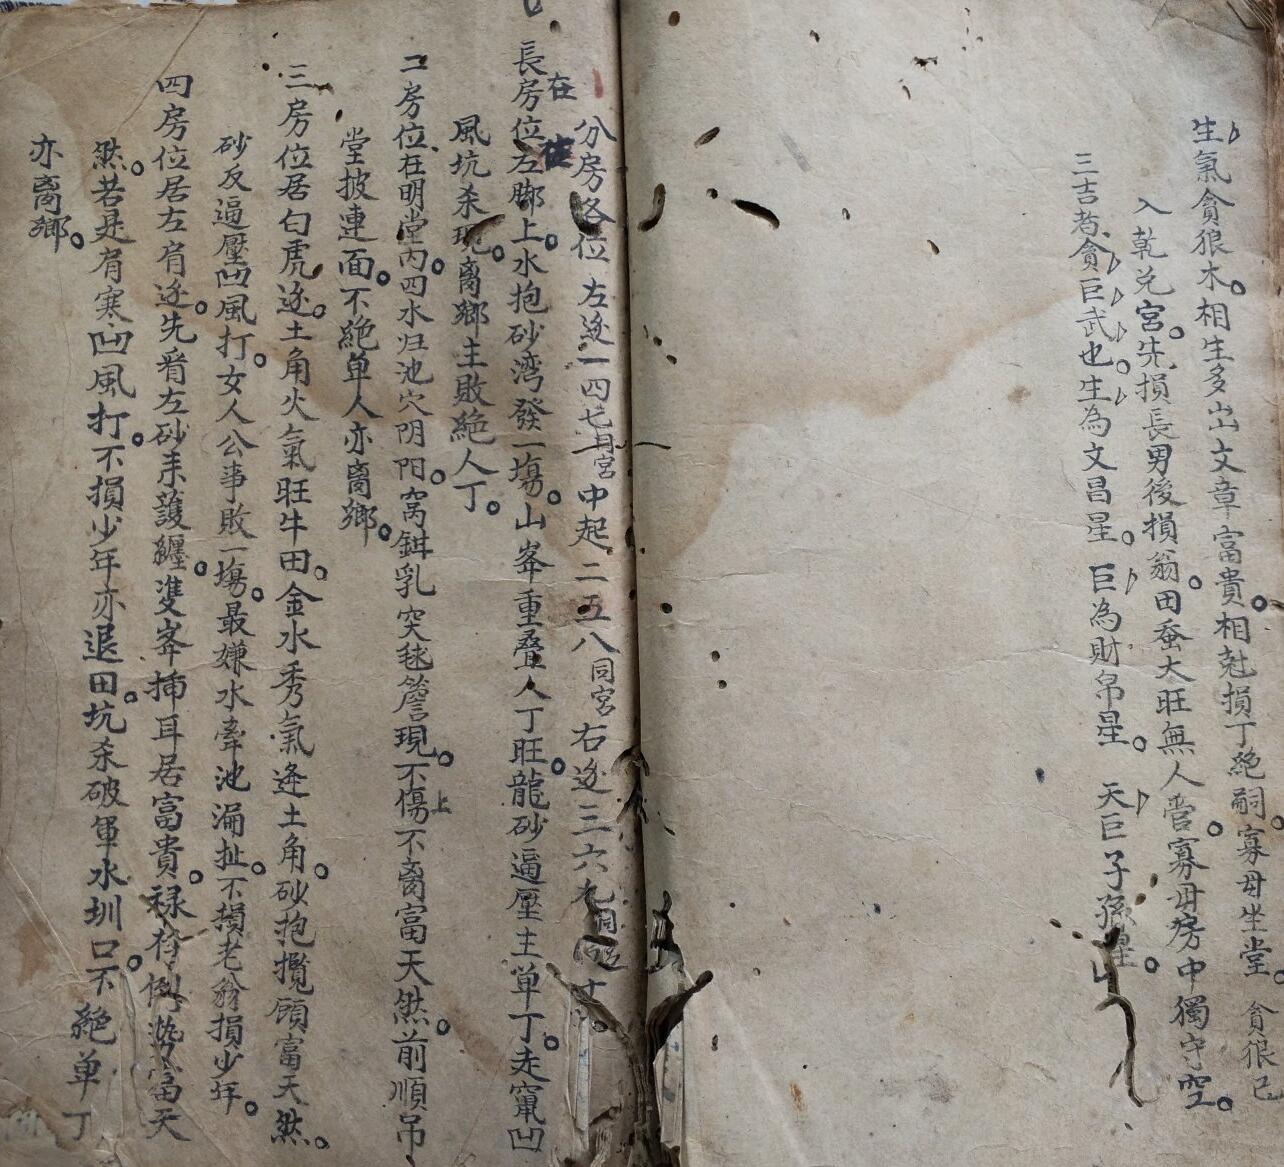 生氣貪狼木相生多出文章富貴相尅損丁絕嗣寡母坐堂 貪狼已
入乾兌宮先損長男後損翁田蚕大旺無人管寡母房中獨守空
三吉者貪巨武也生為文昌星巨為財帛星 天巨子孫星
分房各位 左边一四七同宮中起二五八同宮右边三六九同宮
長房位在左脚上水抱砂湾發一塲山峯重叠人丁旺龍砂逼壓主单丁走竄凹
風坑杀現离鄉主敗絕人丁
二房位在明堂內四水归池穴阴阳窝鉗乳突毬簷現不傷上不离富天然前順吊
堂披連面不絕单人亦离鄉
三房位居白虎边土角火氣旺牛田金水秀氣逢土角砂抱攬顧富天然
砂反逼壓凹風打女人公事敗一塲最嫌水牽池漏扯不損老翁損少年
四房位居左肩边先看左砂来護纏雙峯揷耳居富貴禄存倒地富天
然若是肩寒凹風打不損少年亦退田坑杀破軍水圳口不絕单丁
亦离鄉